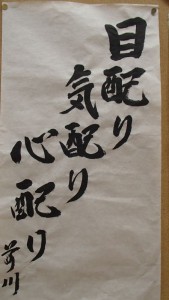 目配り
気配り
心配り